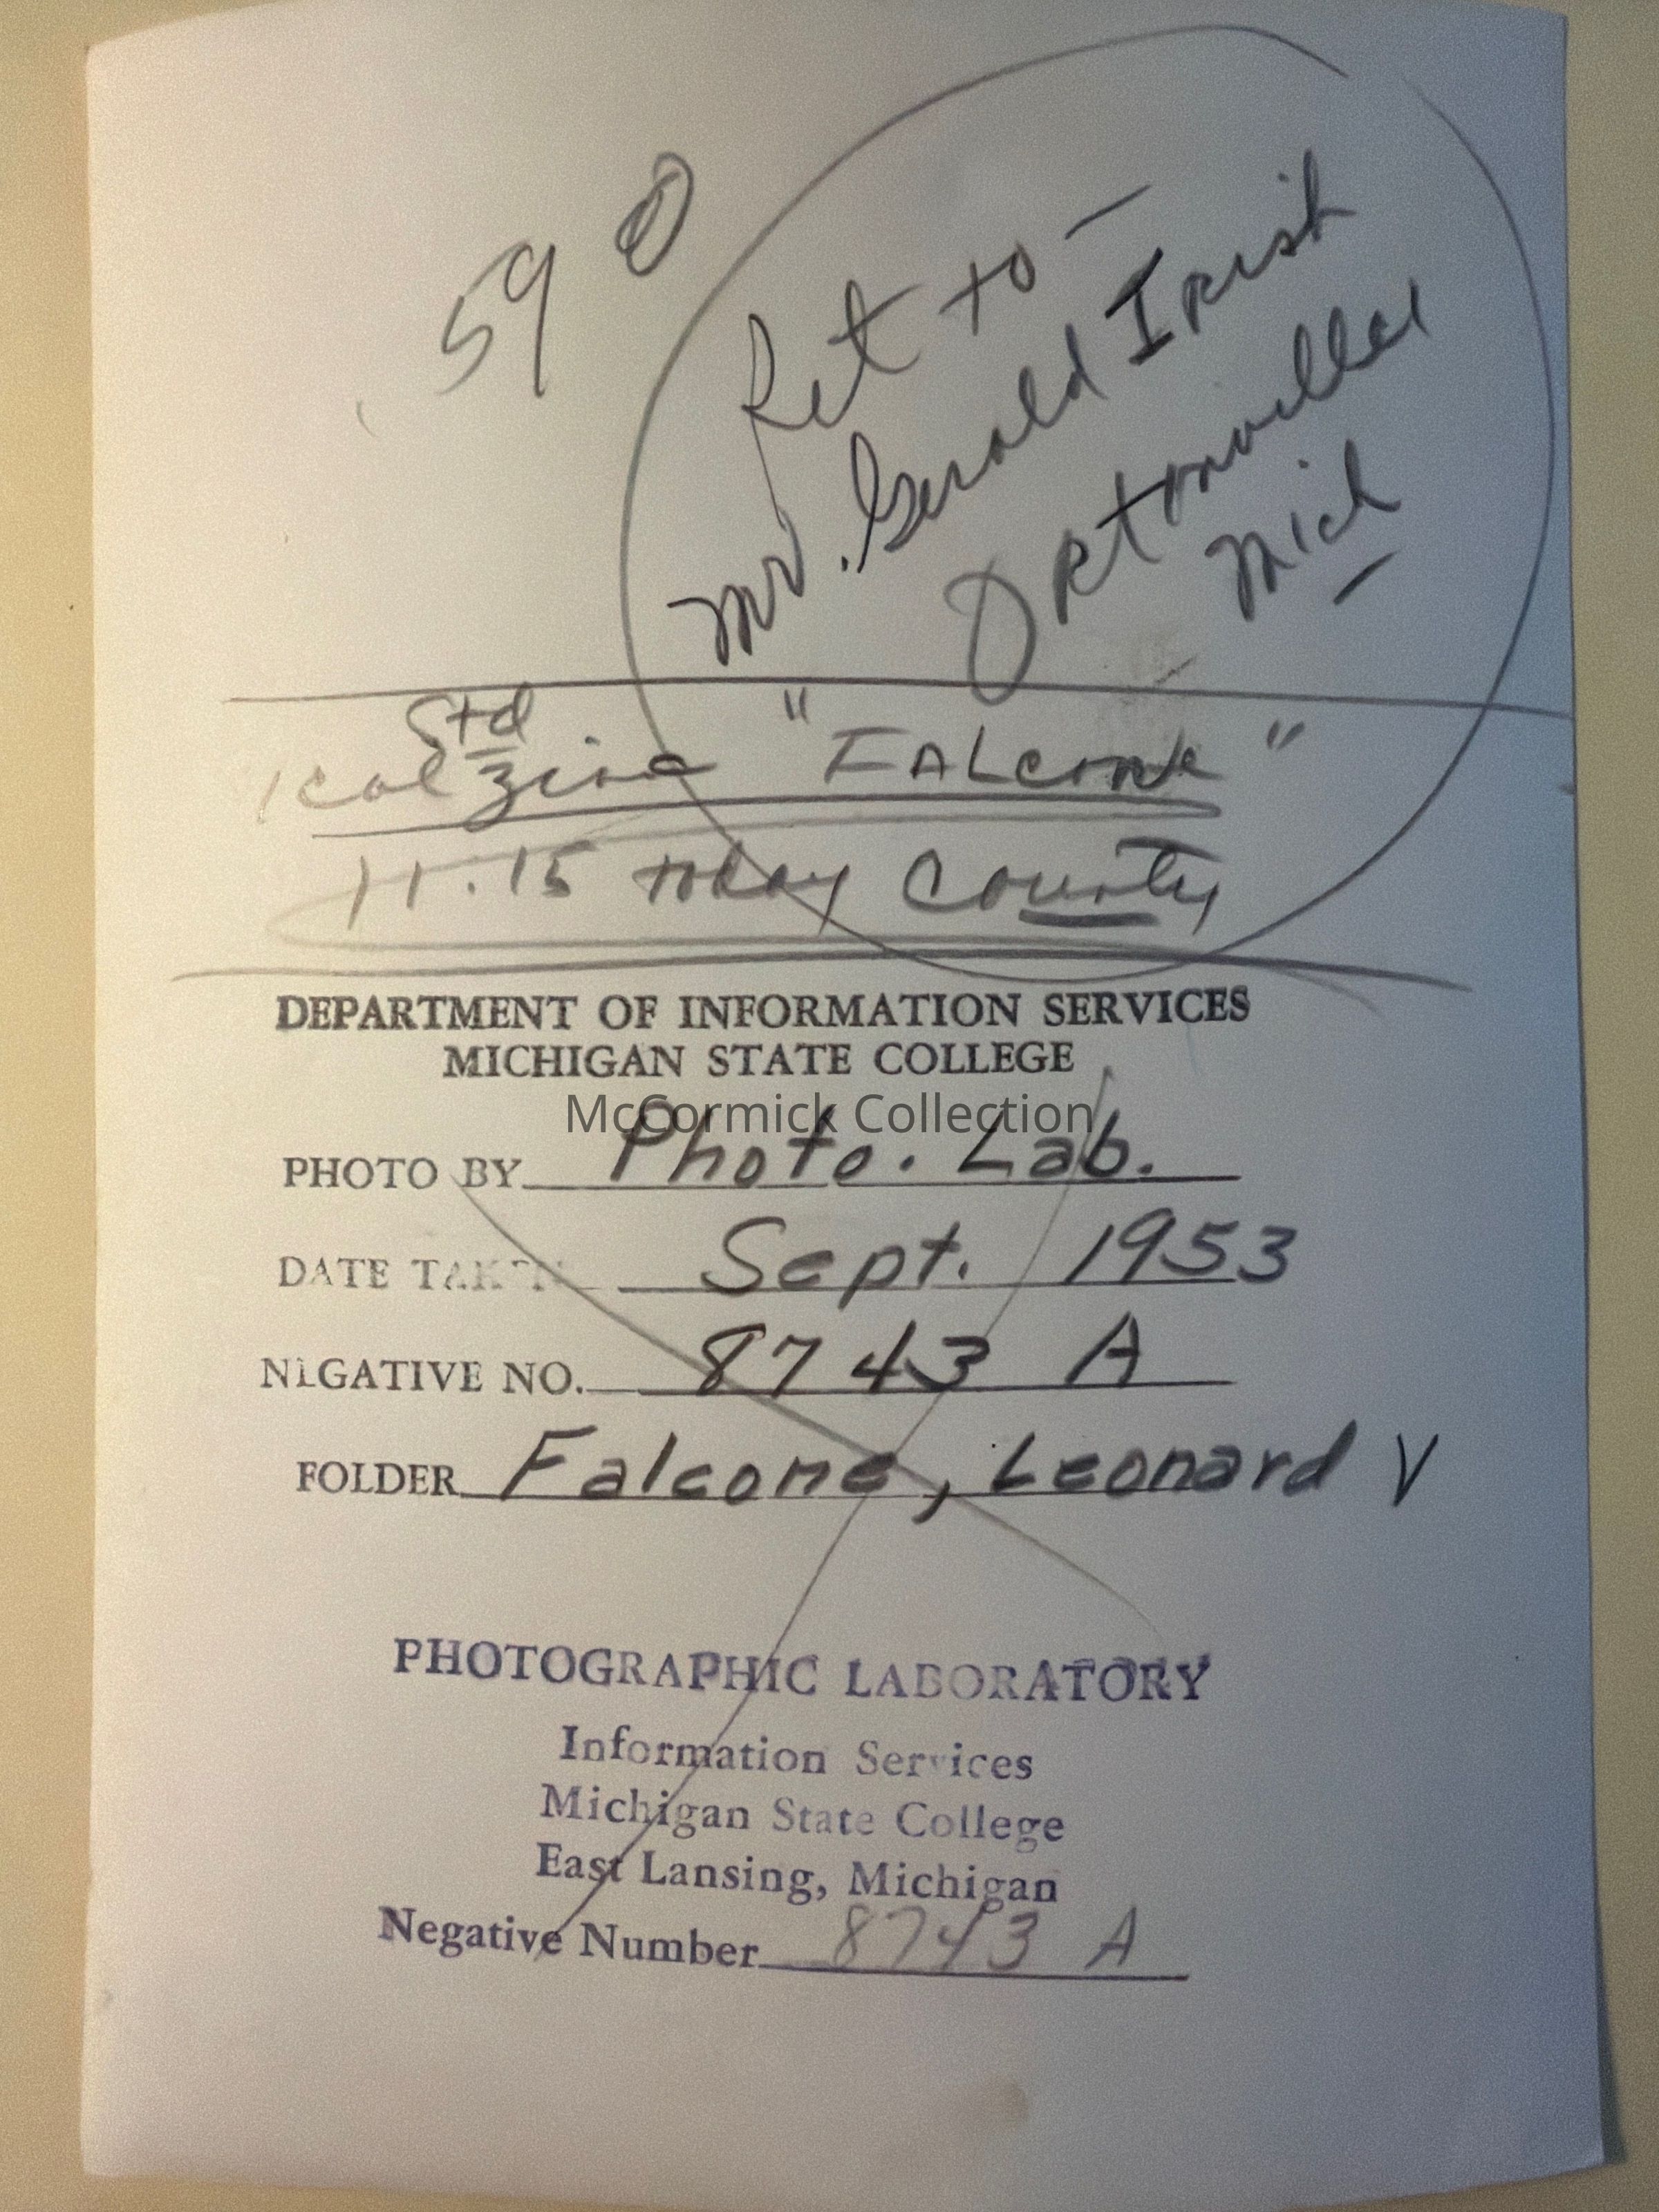 59
Ret to —
Mr. Gerald Irish
Ortonville
Mich
Std
1 col zinc "FALCONE"
11.15 today County
DEPARTMENT OF INFORMATION SERVICES
MICHIGAN STATE COLLEGE
McCormick Collection
PHOTO BY Photo. Lab.
DATE TAKEN Sept. 1953
NEGATIVE NO. 8743 A
FOLDER Falcone, Leonard V
PHOTOGRAPHIC LABORATORY
Information Services
Michigan State College
East Lansing, Michigan
Negative Number 8743 A